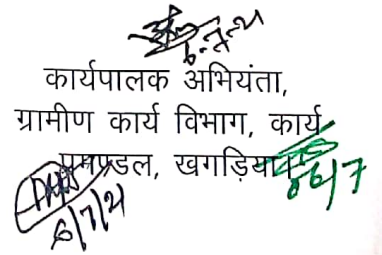 कार्यपालक अभियंता,
ग्रामीण कार्य विभाग, कार्य
प्रमण्डल, खगड़िया।
6/7/21
06/7